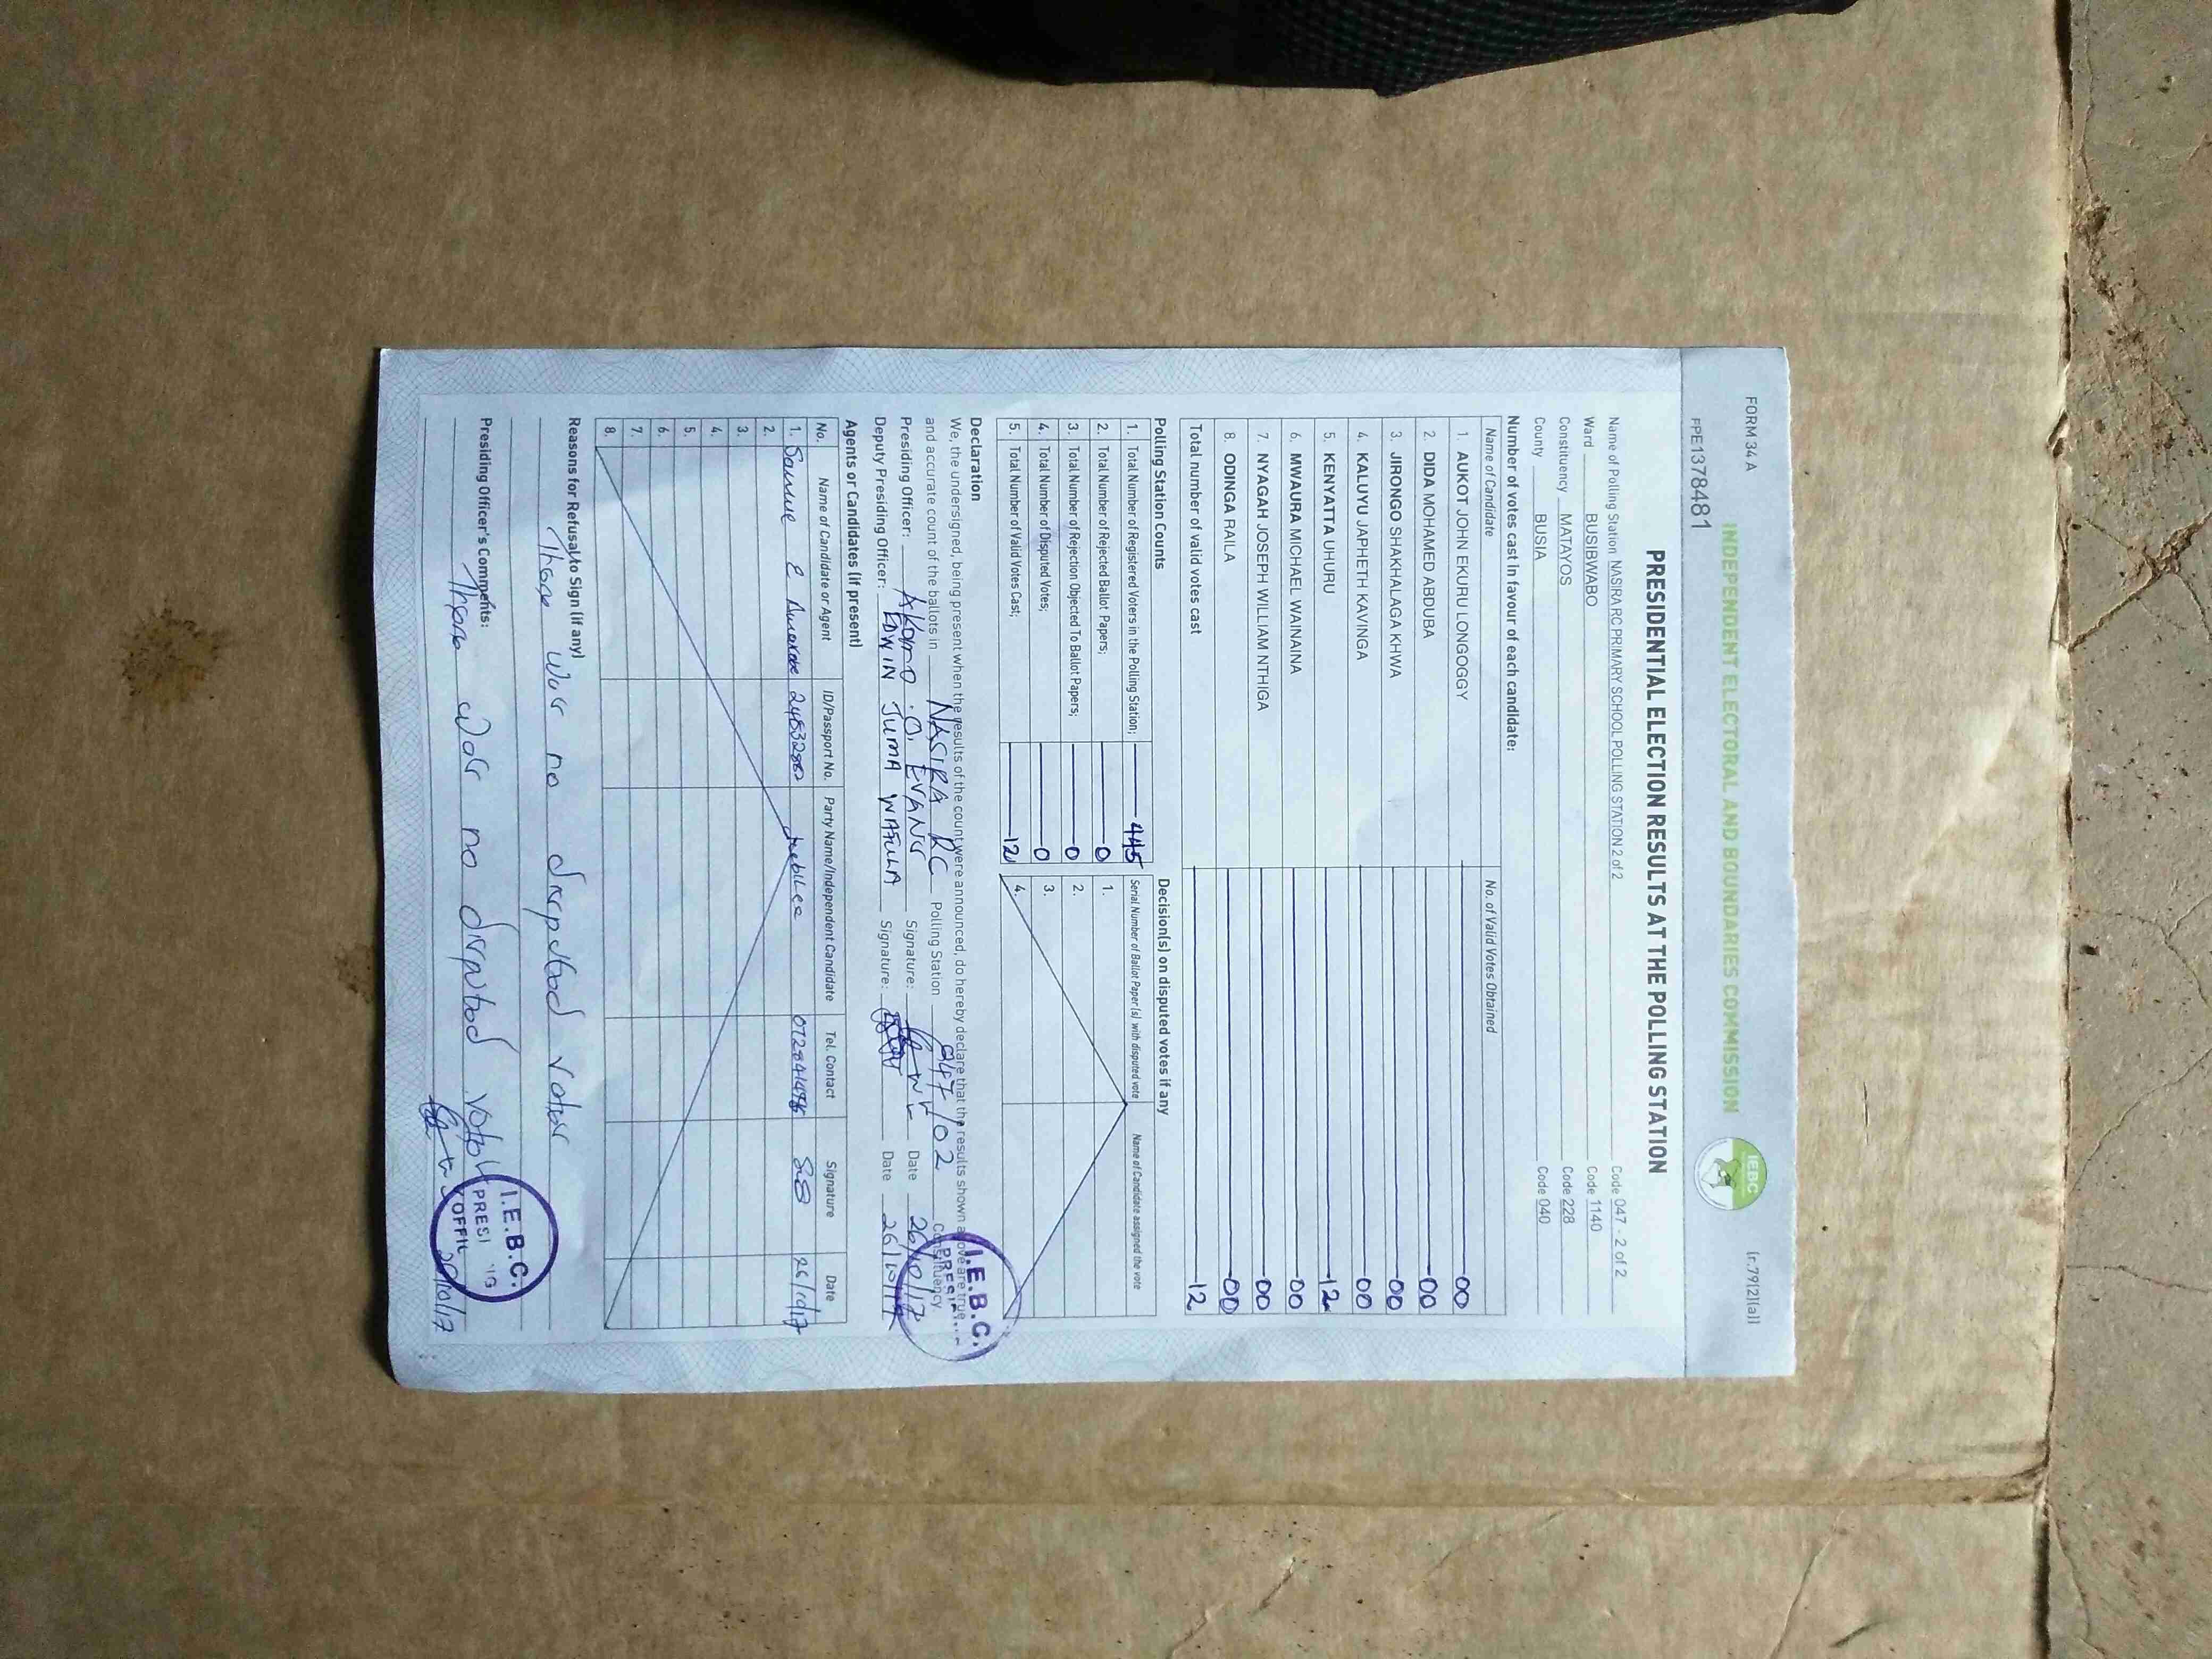 FORM 34 A
INDEPENDENT ELECTORAL AND BOUNDARIES COMMISSION
IEBC
(r.79(2)(a))
FPE1378481
PRESIDENTIAL ELECTION RESULTS AT THE POLLING STATION
Name of Polling Station NASIRA RC PRIMARY SCHOOL POLLING STATION 2 of 2 Code 047 - 2 of 2
Ward BUSIBWABO Code 1140
Constituency MATAYOS Code 228
County BUSIA Code 040
Number of votes cast in favour of each candidate:
Name of Candidate No. of Valid Votes Obtained
1. AUKOT JOHN EKURU LONGOGGY 00
2. DIDA MOHAMED ABDUBA 00
3. JIRONGO SHAKHALAGA KHWA 00
4. KALUYU JAPHETH KAVINGA 00
5. KENYATTA UHURU 12
6. MWAURA MICHAEL WAINAINA 00
7. NYAGAH JOSEPH WILLIAM NTHIGA 00
8. ODINGA RAILA 00
Total number of valid votes cast 12
Polling Station Counts
1. Total Number of Registered Voters in the Polling Station; 445
2. Total Number of Rejected Ballot Papers; 0
3. Total Number of Rejection Objected To Ballot Papers; 0
4. Total Number of Disputed Votes; 0
5. Total Number of Valid Votes Cast; 12
Decision(s) on disputed votes if any
Serial Number of Ballot Paper(s) with disputed vote Name of Candidate assigned the vote
1.
2.
3.
4.
Declaration
We, the undersigned, being present when the results of the count were announced, do hereby declare that the results shown above are true
and accurate count of the ballots in NASIRA RC Polling Station 047/02 Constituency.
Presiding Officer: AKOMO .O. EVANS Signature: Date 26/10/17
Deputy Presiding Officer: EDWIN JUMA WAFULA Signature: Date 26/10/17
I.E.B.C.
Agents or Candidates (if present)
No. Name of Candidate or Agent ID/Passport No. Party Name/Independent Candidate Tel. Contact Signature Date
1. 26/10/17
2.
3.
4.
5.
6.
7.
8.
Reasons for Refusal to Sign (if any)
There was no disputed votes
Presiding Officer's Comments:
There was no disputed votes
I.E.B.C.
PRESI NG
OFFIC
26/10/17